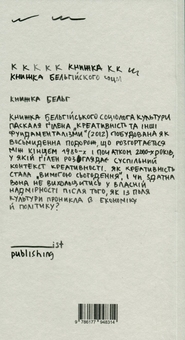 К К К К К КНИЖКА К К
КНИЖКА БЕЛЬГІЙСЬКОГО СОЦІ
КНИЖКА БЕЛЬГ
КНИЖКА БЕЛЬГІЙСЬКОГО СОЦІОЛОГА КУЛЬТУРИ
ПАСКАЛЯ ҐІЛЕНА „КРЕАТИВНІСТЬ ТА ІНШІ
ФУНДАМЕНТАЛІЗМИ“ (2012) ПОБУДОВАНА ЯК
ВІСЬМИДЕННА ПОДОРОЖ, ЩО РОЗГОРТАЄТЬСЯ
МІЖ КІНЦЕМ 1970-Х І ПОЧАТКОМ 2000-Х РОКІВ,
У ЯКІЙ ҐІЛЕН РОЗГЛЯДАЄ СУСПІЛЬНИЙ
КОНТЕКСТ КРЕАТИВНОСТІ. ЯК КРЕАТИВНІСТЬ
СТАЛА „ВИМОГОЮ СЬОГОДЕННЯ“, І ЧИ ЗДАТНА
ВОНА НЕ ВИХОЛОСТИТИСЬ У ВЛАСНІЙ
НАДМІРНОСТІ ПІСЛЯ ТОГО, ЯК ІЗ ПОЛЯ
КУЛЬТУРИ ПРОНИКЛА В ЕКОНОМІКУ
Й ПОЛІТИКУ?
ist
publishing
9 786177 948314